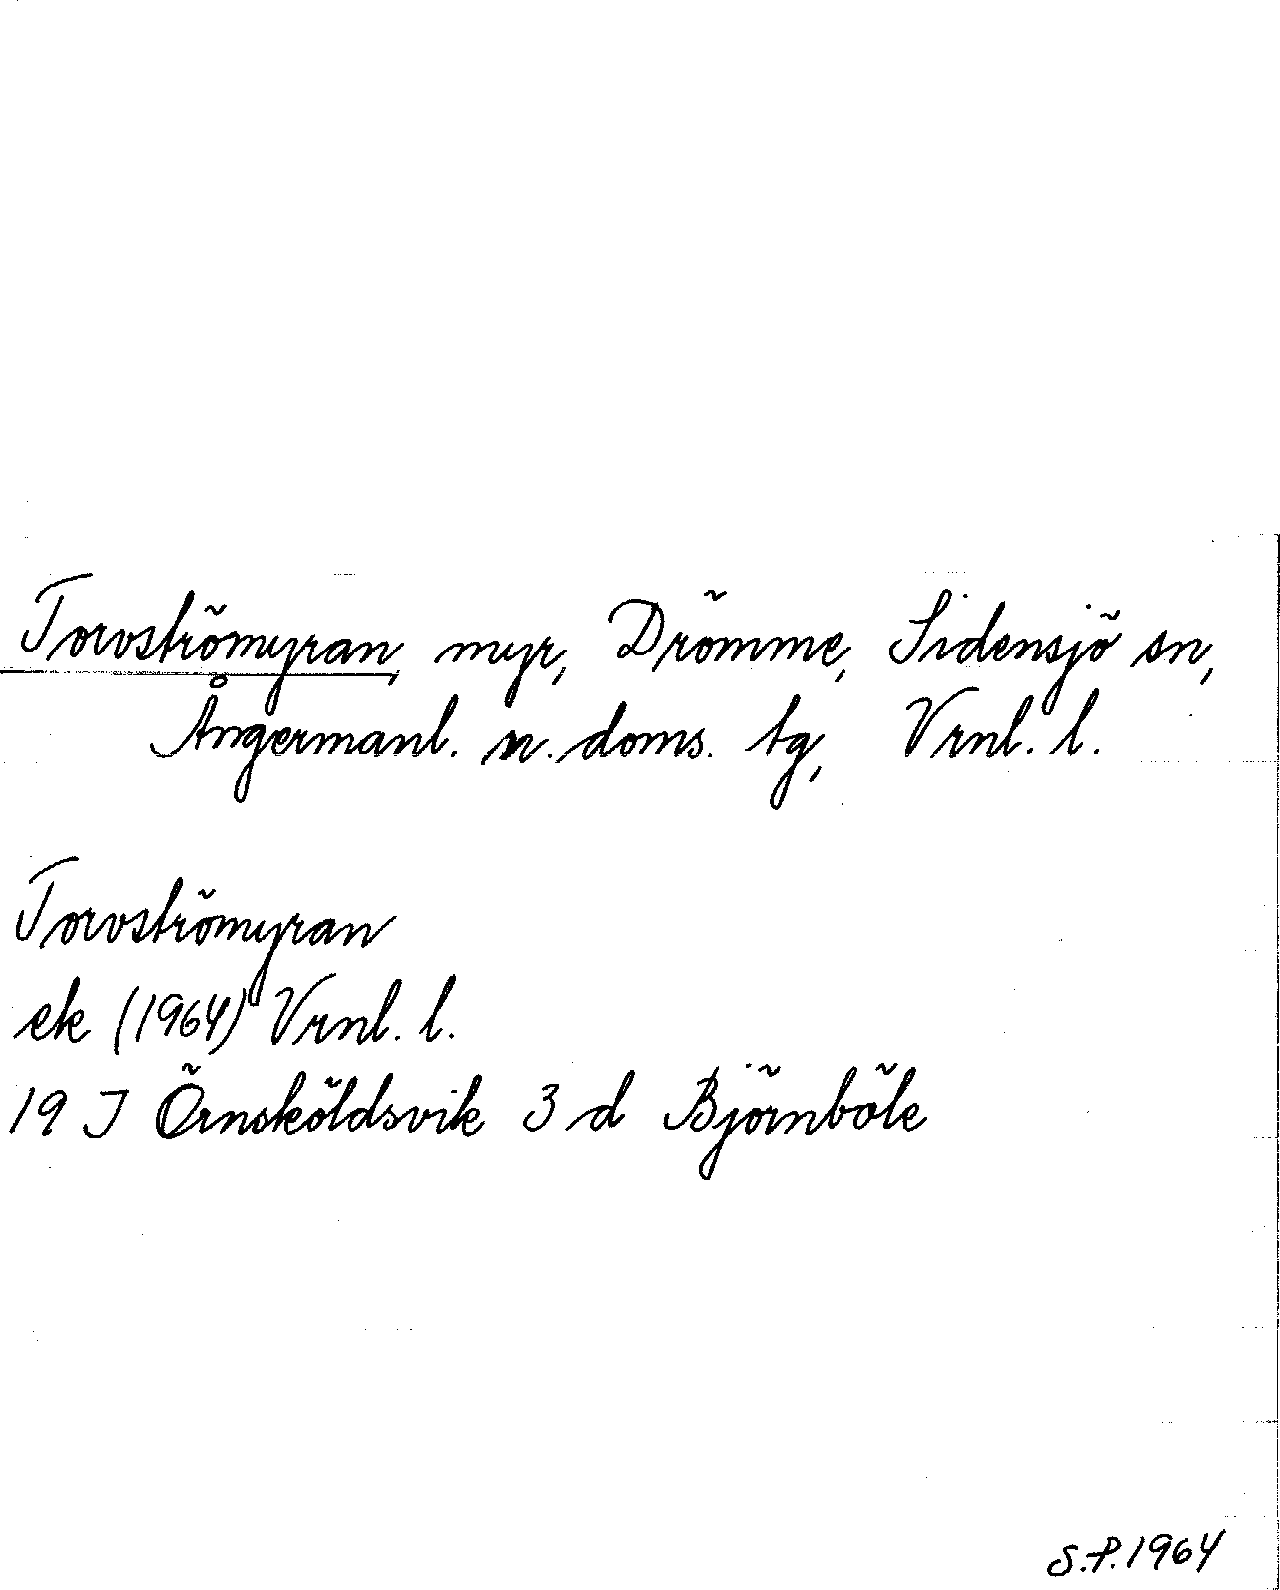 Torvströmyran, myr, Drömme, Sidensjö sn,
Ångermanl. n. doms. tg, Vrnl. l.
Torvströmyran
ek (1964) Vrnl. l.
19 J Örnsköldsvik 3 d Björnböle
S.P. 1964